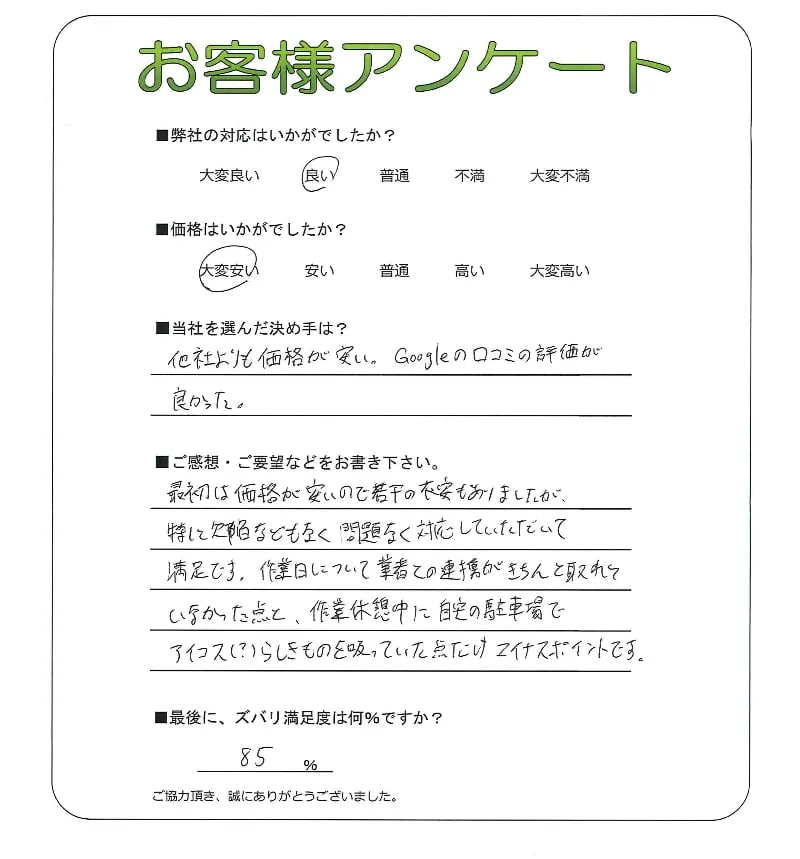 お客様アンケート
■弊社の対応はいかがでしたか？
大変良い 良い 普通 不満 大変不満
■価格はいかがでしたか？
大変安い 安い 普通 高い 大変高い
■当社を選んだ決め手は？
他社よりも価格が安い。Googleの口コミの評価が
良かった。
■ご感想・ご要望などをお書き下さい。
最初は価格が安いので若干の不安もありましたが、
特に欠陥なども無く問題なく対応していただいて
満足です。作業日について業者との連携がきちんと取れて
いなかった点と、作業休憩中に自宅の駐車場で
アイコス(?)らしきものを吸っていた点だけマイナスポイントです。
■最後に、ズバリ満足度は何%ですか？
85 %
ご協力頂き、誠にありがとうございました。